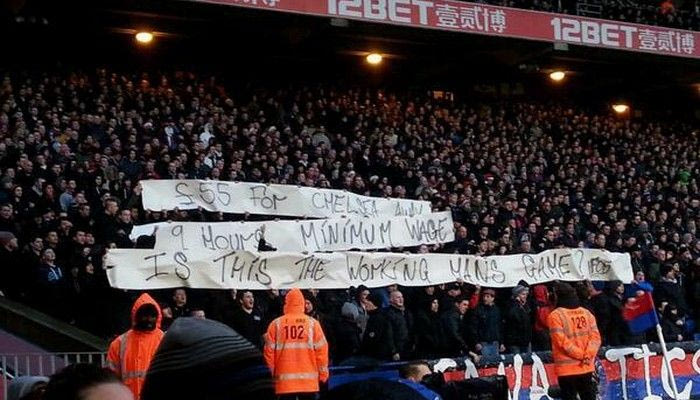 12BET壹贰博 12BET壹贰博
£55 FOR CHELSEA AWAY
9 HOURS MINIMUM WAGE
IS THIS THE WORKING MANS GAME?
102
128